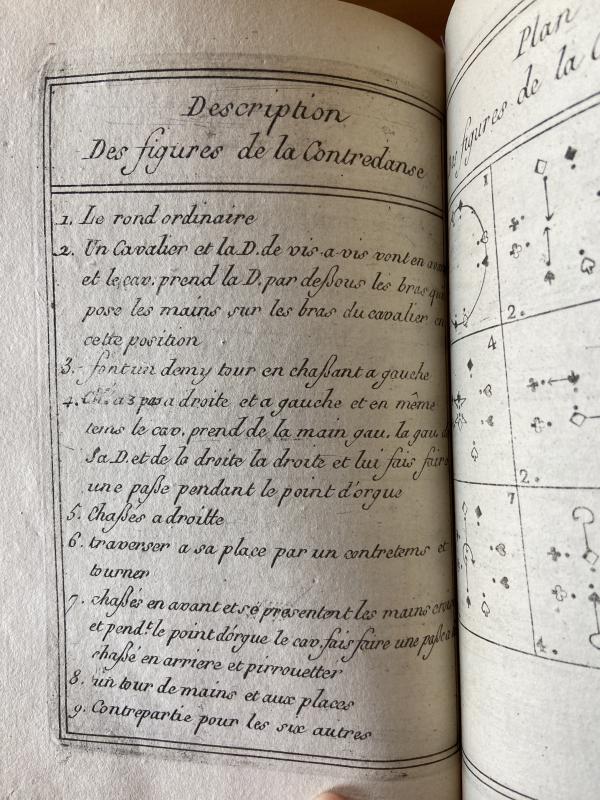 Description
Des figures de la Contredanse
1. Le rond ordinaire
2. Un Cavalier et la D. de vis-a-vis vont en
et le cav. prend la D. par deßous les bras qui
pose les mains sur les bras du cavalier en
cette position
3. font un demy tour en chaßant a gauche
4. a 3 pas a droite et a gauche et en même
tems le cav. prend de la main gau. la gau. de
Sa D. et de la droite la droite et lui fais faire
une paße pendant le point d'orgue
5. Chaßés a droitte
6. traverser a sa place par un contretems et
tourner
7. chaßés en avant et se présentent les mains
et pend.t le point d'órgue le cav. fais faire une paße
chaßé en arriere et pirrouetter
8. un tour de mains et aux places
9. Contrepartie pour les six autres
Plan
figures de la C
1
2.
4
2.
7
4.